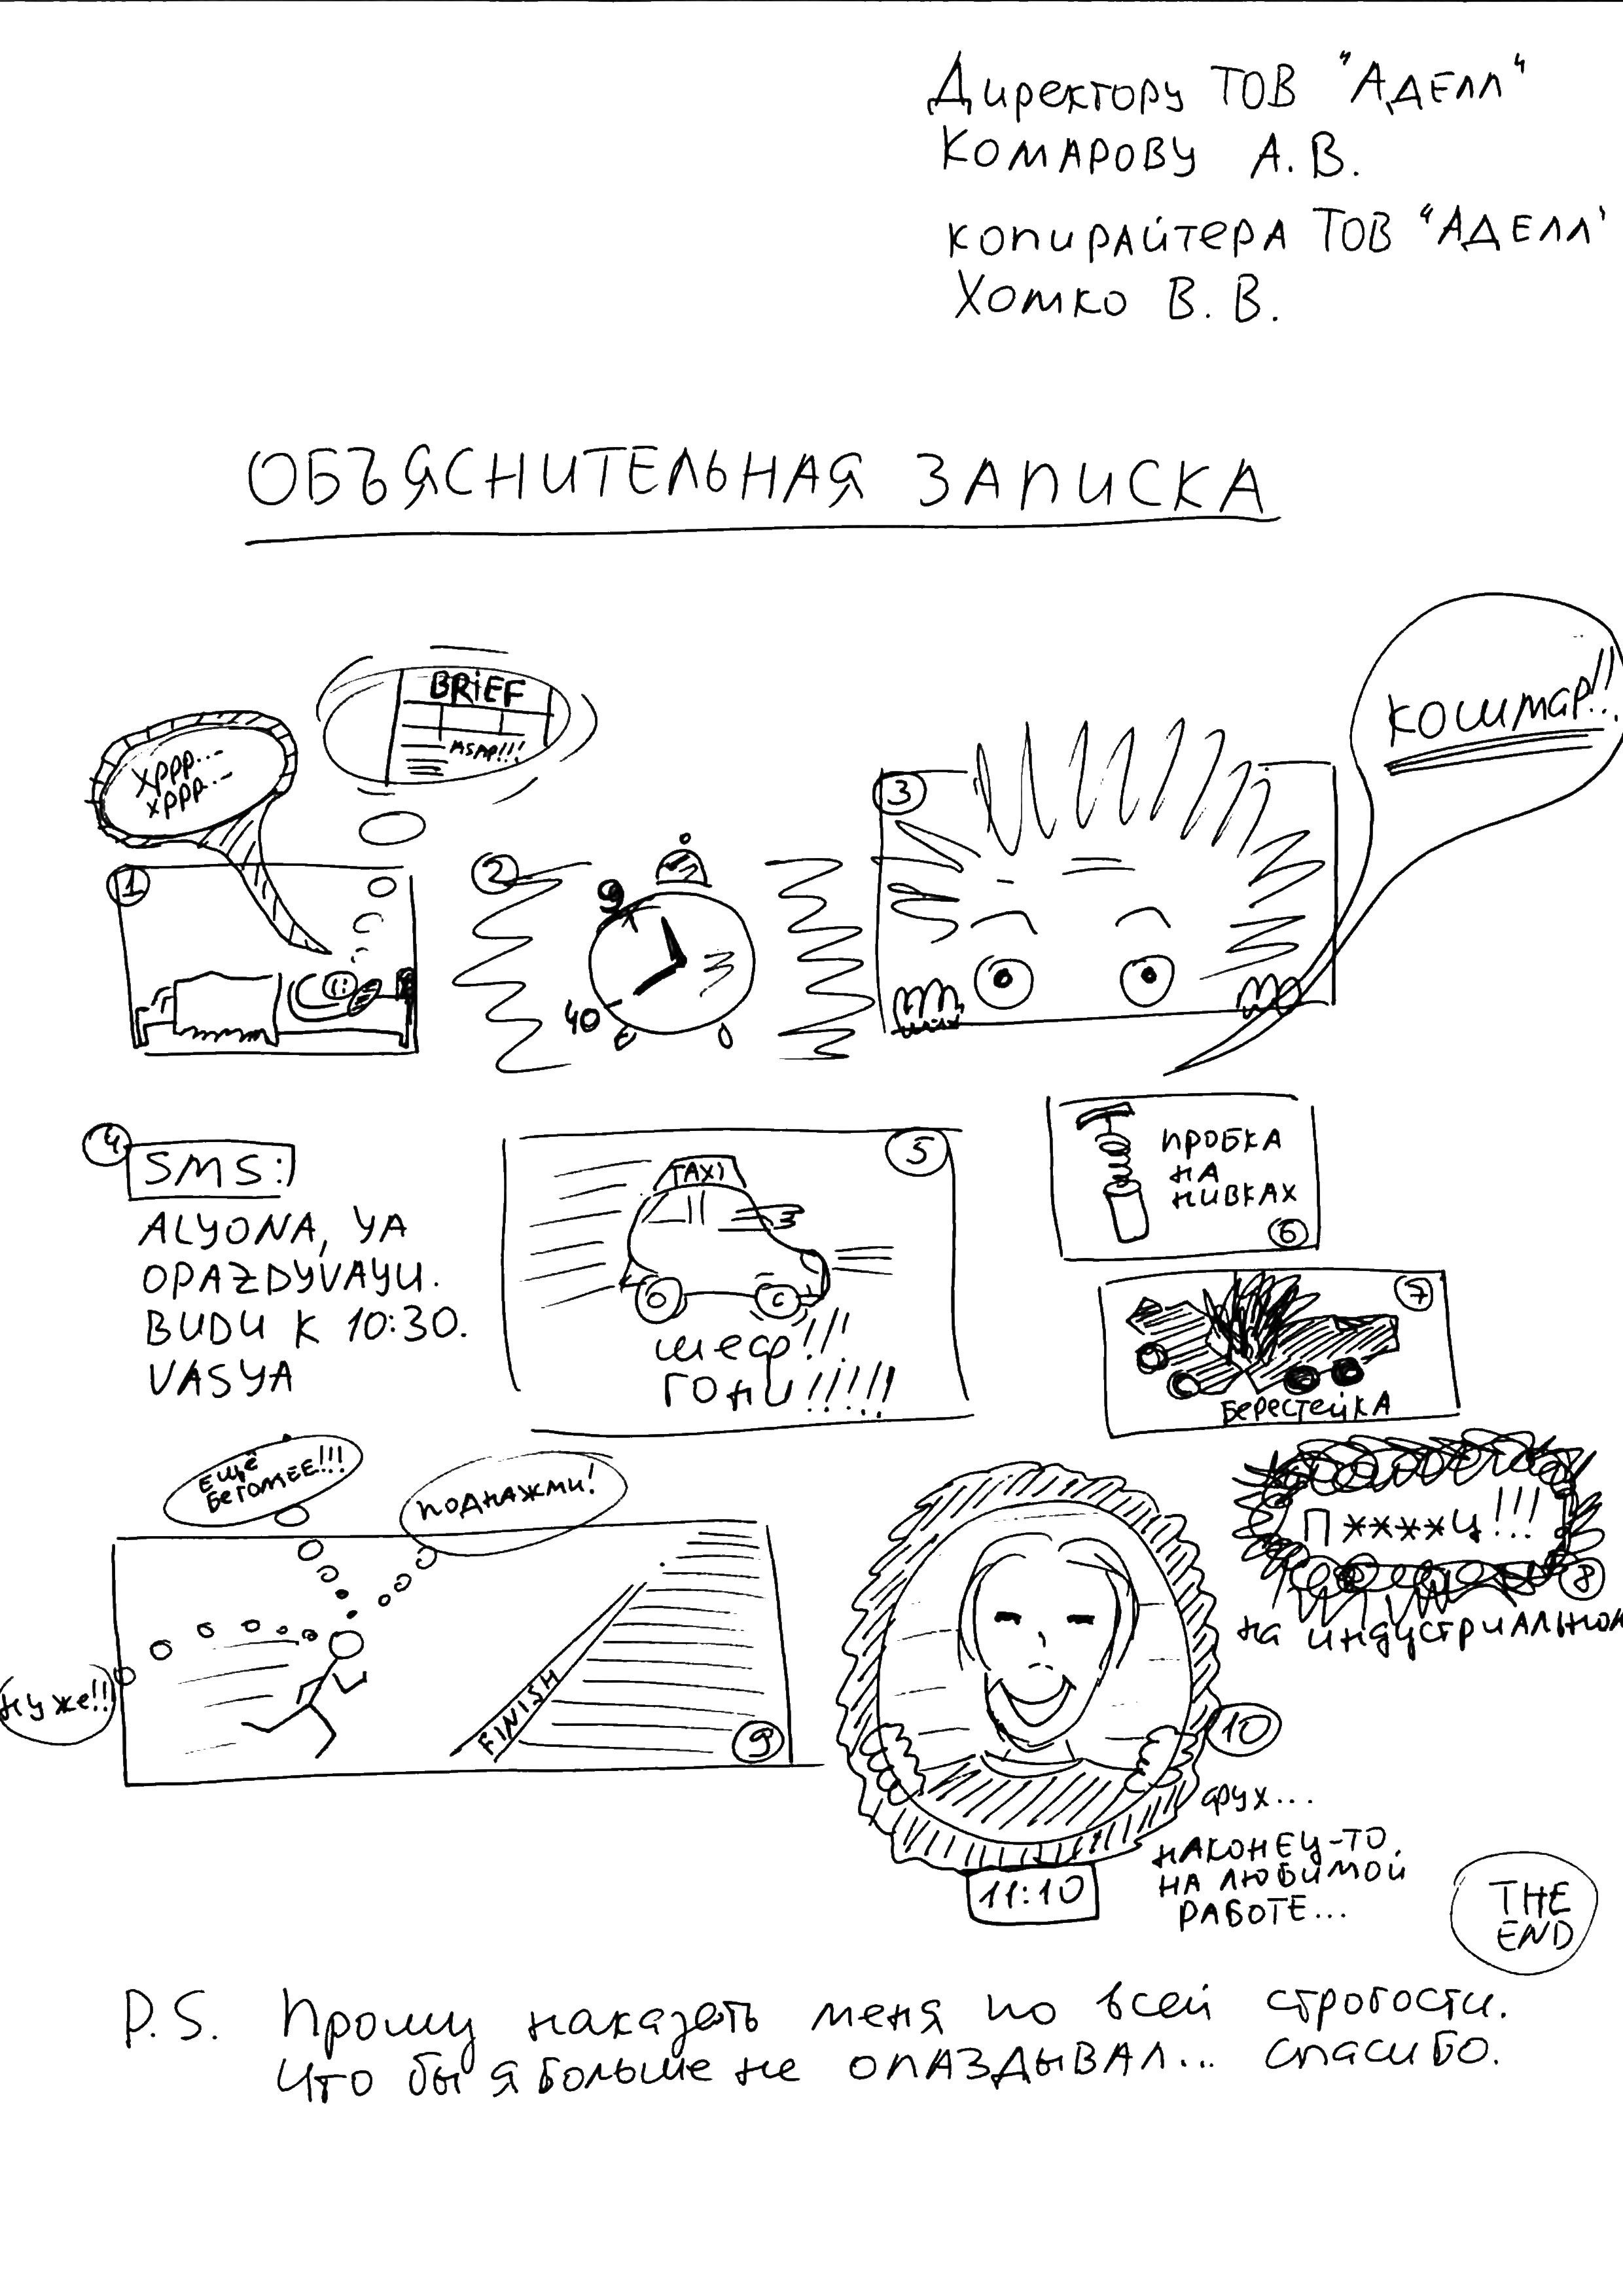 Директору ТОВ "Аделл"
Комарову А. В.
копирайтера ТОВ "Аделл"
Хомко В. В.
ОБЪЯСНИТЕЛЬНАЯ ЗАПИСКА
1
хррр...
хррр...
BRIEF
ASAP!!!
2
9
40
3
кошмар!!!
4
SMS:)
ALYONA, YA
OPAZDYVAYU.
BUDU K 10:30.
VASYA
5
TAXI
шеф!!!
гони!!!!!
пробка
на
нивках
6
7
Берестейка
П****ц!!!
8
на индустриальном
ещё
бегомее!!!
поднажми!
ну же!!
FINISH
9
10
фух...
наконец-то
на любимой
работе...
11:10
THE
END
P.S. Прошу наказать меня по всей строгости.
Что бы я больше не опаздывал... спасибо.